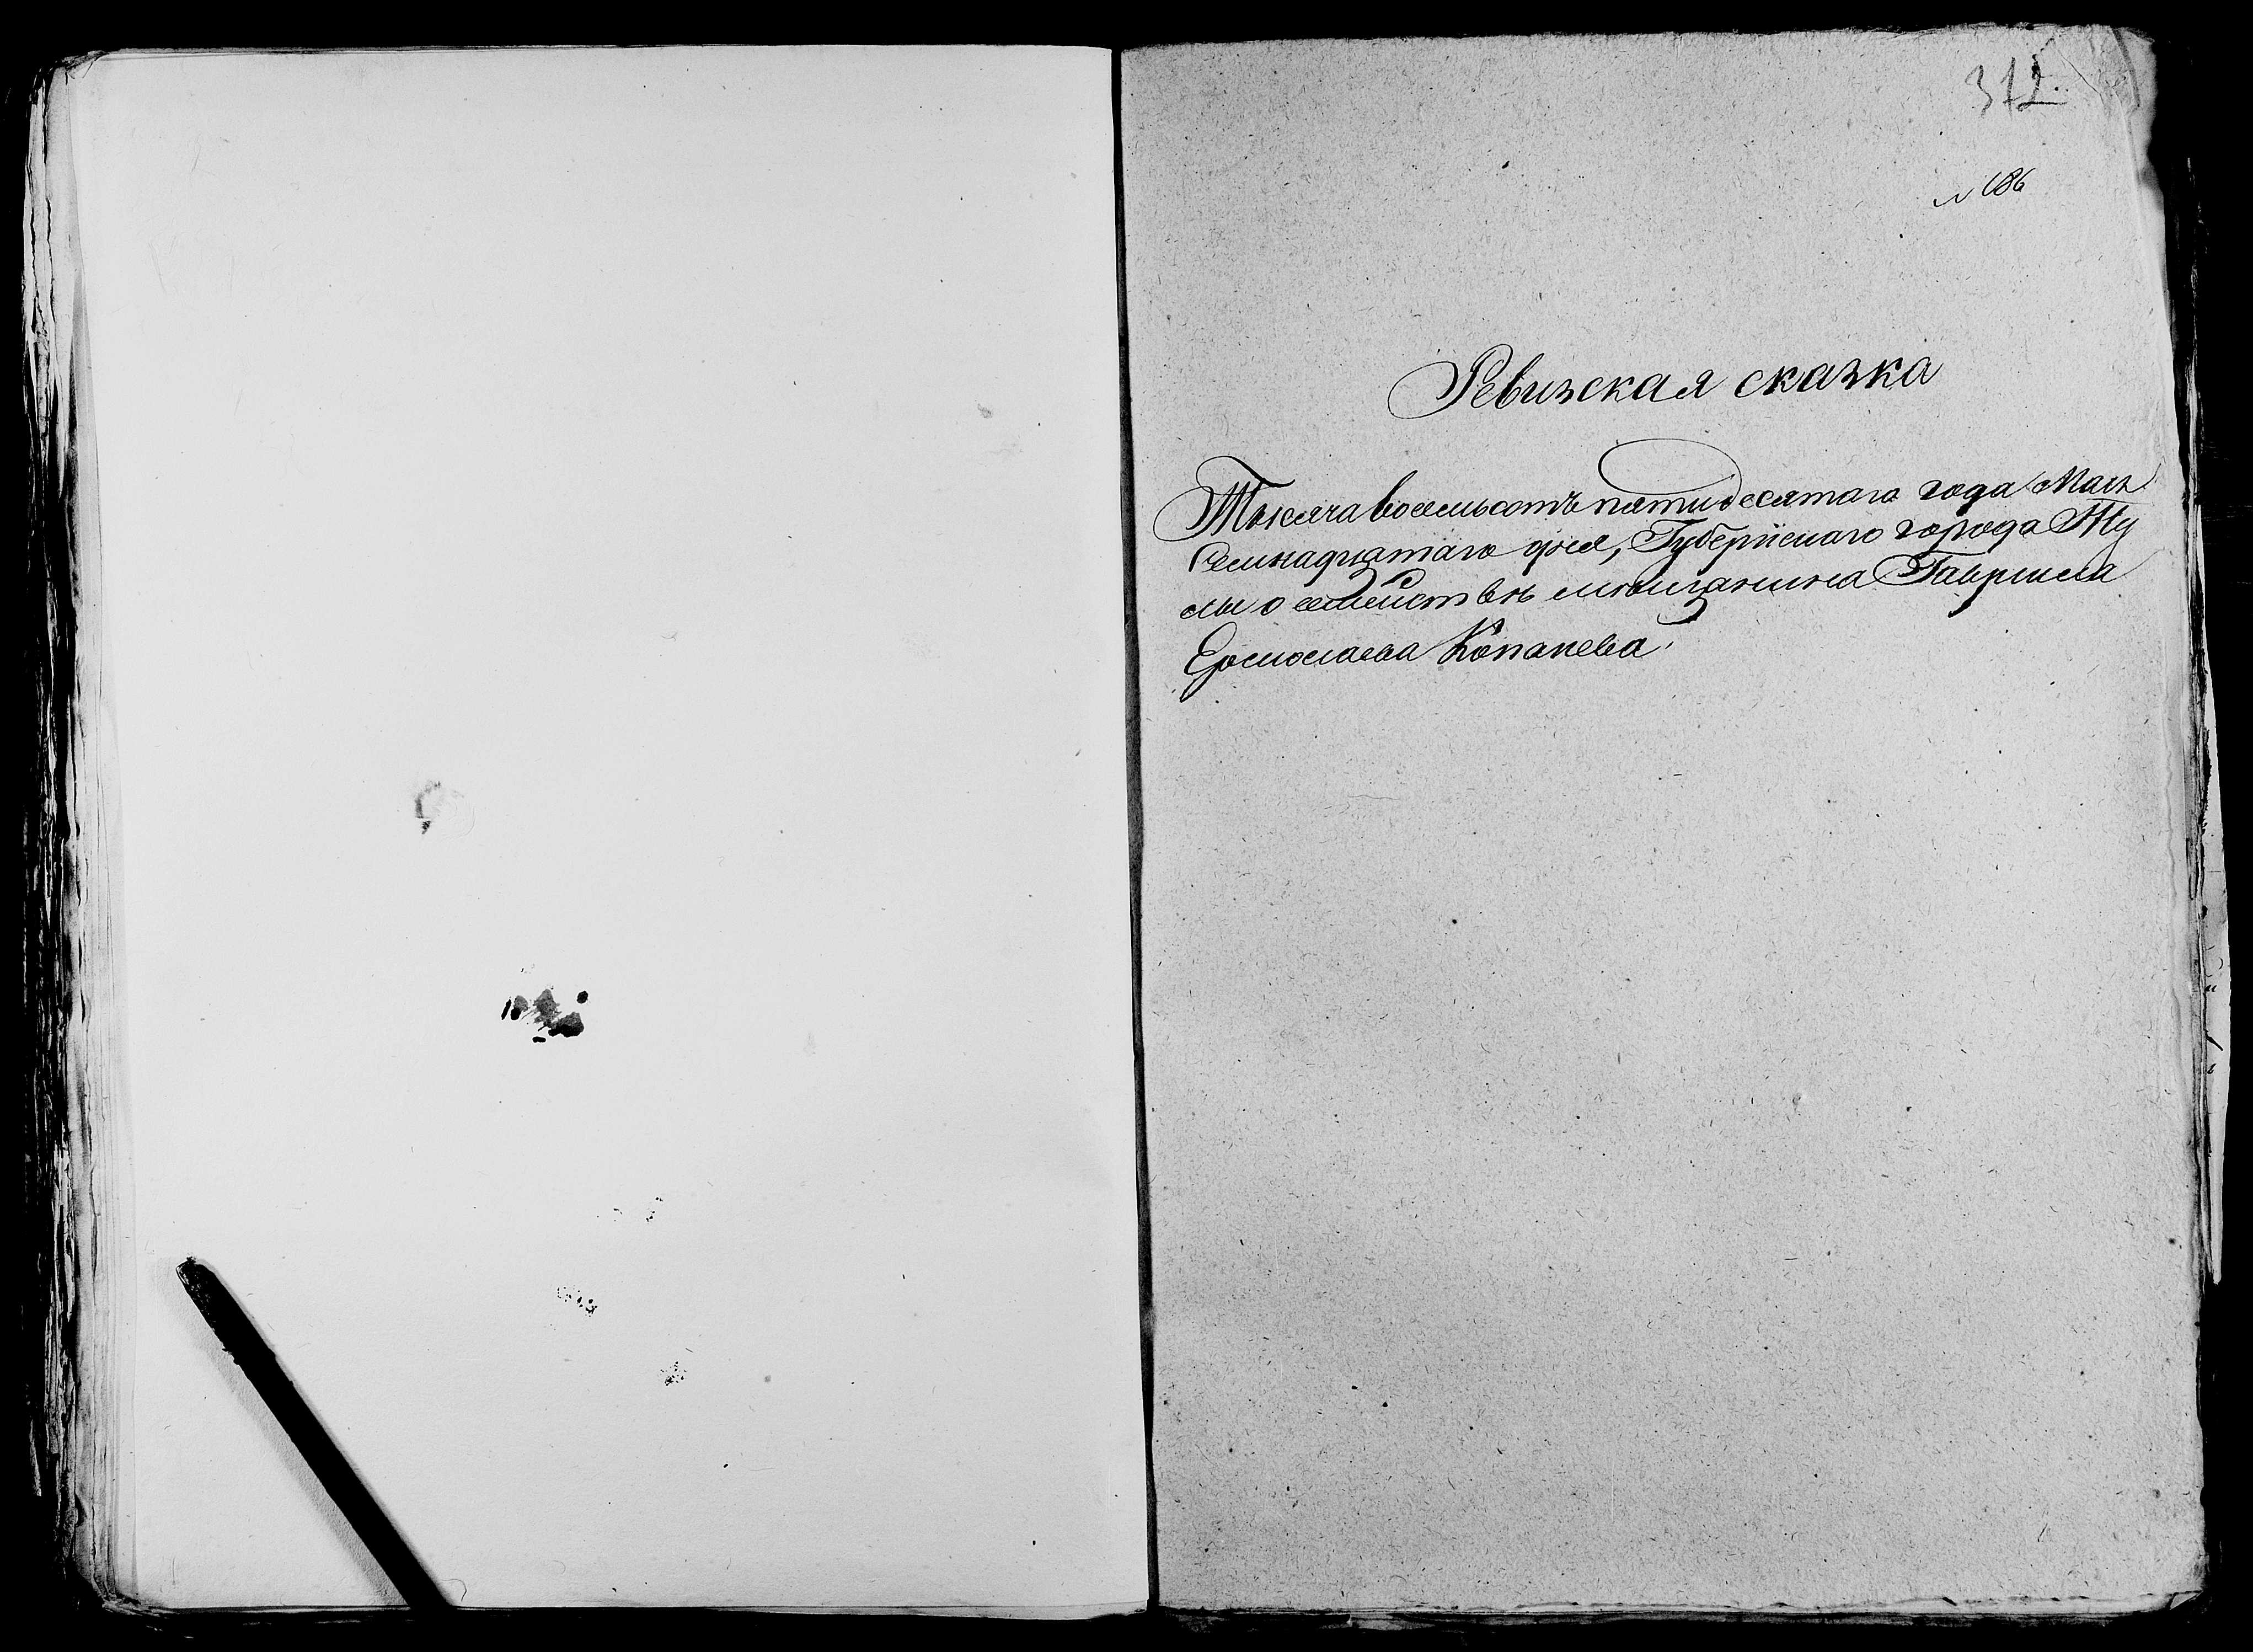 312.
№ 186
Ревизская сказка
Тысяча восемьсотъ пятидесятаго года Маія
Семнадцатаго дня, Губернскаго города Ту
лы о семействѣ мѣщанина Гавриила
Ермолаева Копанева.